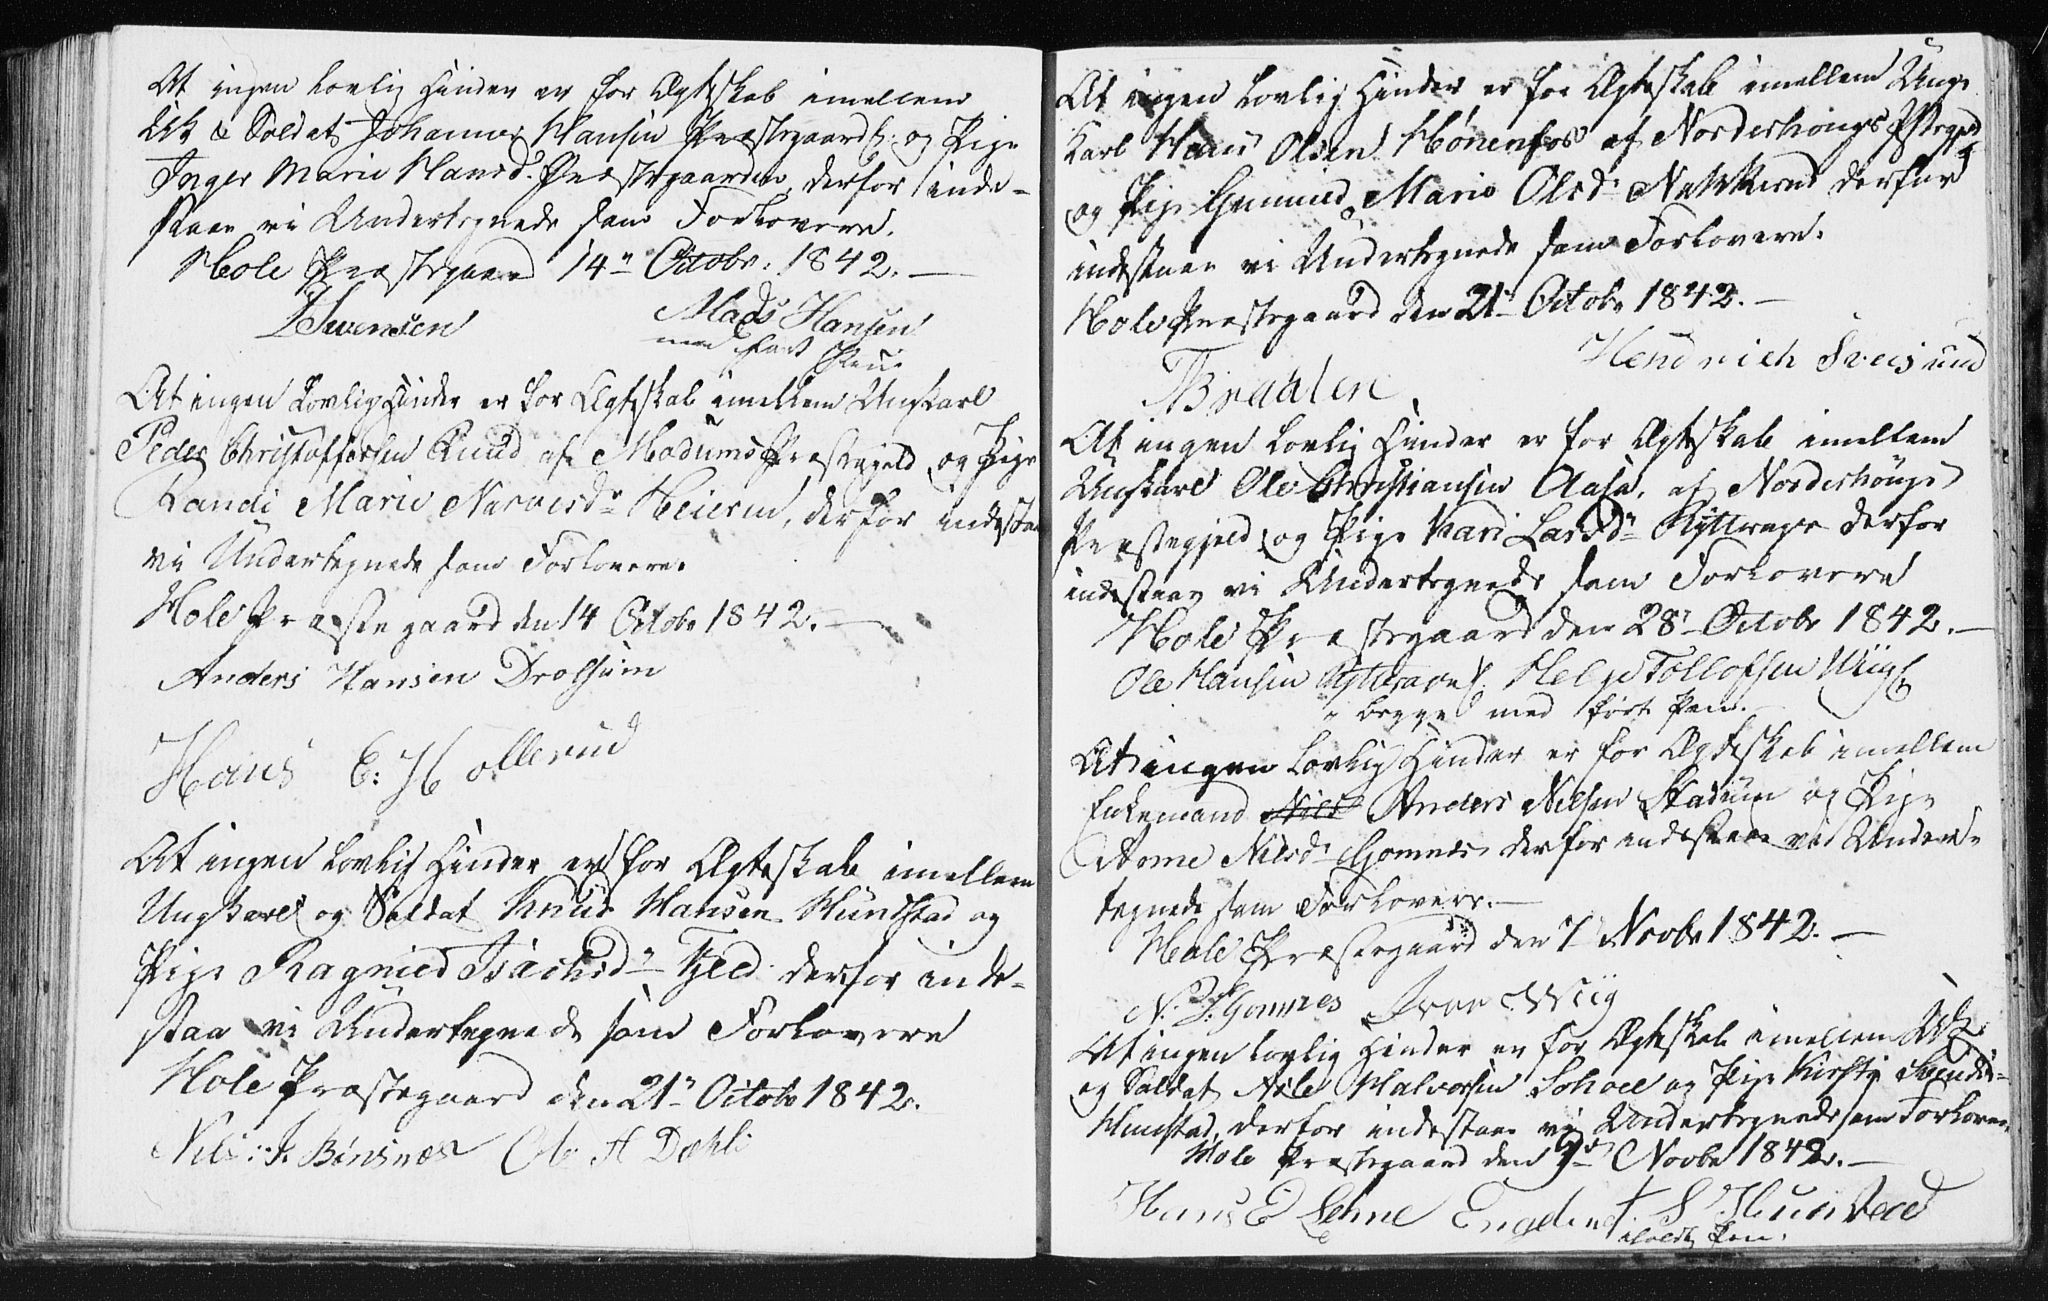 At ingen lovlig Hinder er for Ægteskab imellem
Uk & Soldat Johannes Hansen Præstegaards: og Pige
Inger Marie Hansd: Præstegaarden, derfor inde-
staae vi Undertegnede som Forlovere.
Hole Præstegaard 14n Octobr: 1842.—
Svensen Mads Hansen
med ført Pen
At ingen Lovlig Hinder er for Ægteskab imellem Ungkarl
Peder Christoffersen Ruud af Modums Præstegjeld og Pige
Randi Marie Narvesdr Heierud, derfor indestaae
vi Undertegnede som Forlovere.
Hole Præstegaard den 14 Octobr 1842.—
Anders Hansen Drolsum
Hans E: Hollerud
At ingen Lovlig Hinder er for Ægteskab imellem
Ungkarl og Soldat Knud Hansen Hundstad og
Pige Ragnied Isachsdr Fjeld derfor inde-
staa vi Undertegnede som Forlovere
Hole Præstegaard den 21n Octobr 1842.
Nils: J. Bønsnæs Ole H Dæhli
At ingen Lovlig Hinder er for Ægteskab imellem Ung-
karl Hans Olsen Hønenfos af Norderhougs Pstegjd
og Pige Gunnied Marie Olsd: Nakkerud derfor
indestaae vi Undertegnede som Forlovere.
Hole Præstegaard den 21n Octobr 1842.—
Hendrich Sveisrud
T Braaten
At ingen Lovlig Hinder er for Ægteskab imellem
Ungkarl Ole Christiansen Aasa, af Norderhougs
Præstegjeld og Pige Kari Larsdn Rytterager derfor
indestaae vi Undertegnede som Forlovere
Hole Præstegaard den 28n Octobr 1842.—
Ole Hansen Helge Tollofsen Wiig
begge med ført Pen.
At ingen Lovlig Hinder er for Ægteskab imellem
Enkemand Anders Nilsen Stadum og Pige
Anne Nilsdr Gomnæs derfor indestaae vi Under-
tegnede som Forlovere.—
Hole Præstegaard den 7n Novbr 1842.—
N. J. Gomnes Iver Wiig
At ingen lovlig Hinder er for Ægteskab imellem Uk:
og Soldat Asle Halvorsen Sohoel og Pige Kirsti
Hundstad, derfor indestaae vi Undertegnede som Forlovere
Hole Præstegaard den 9de Novbr 1842.—
Hans E Lehne Engebret S Hurum
iholdt Pen.